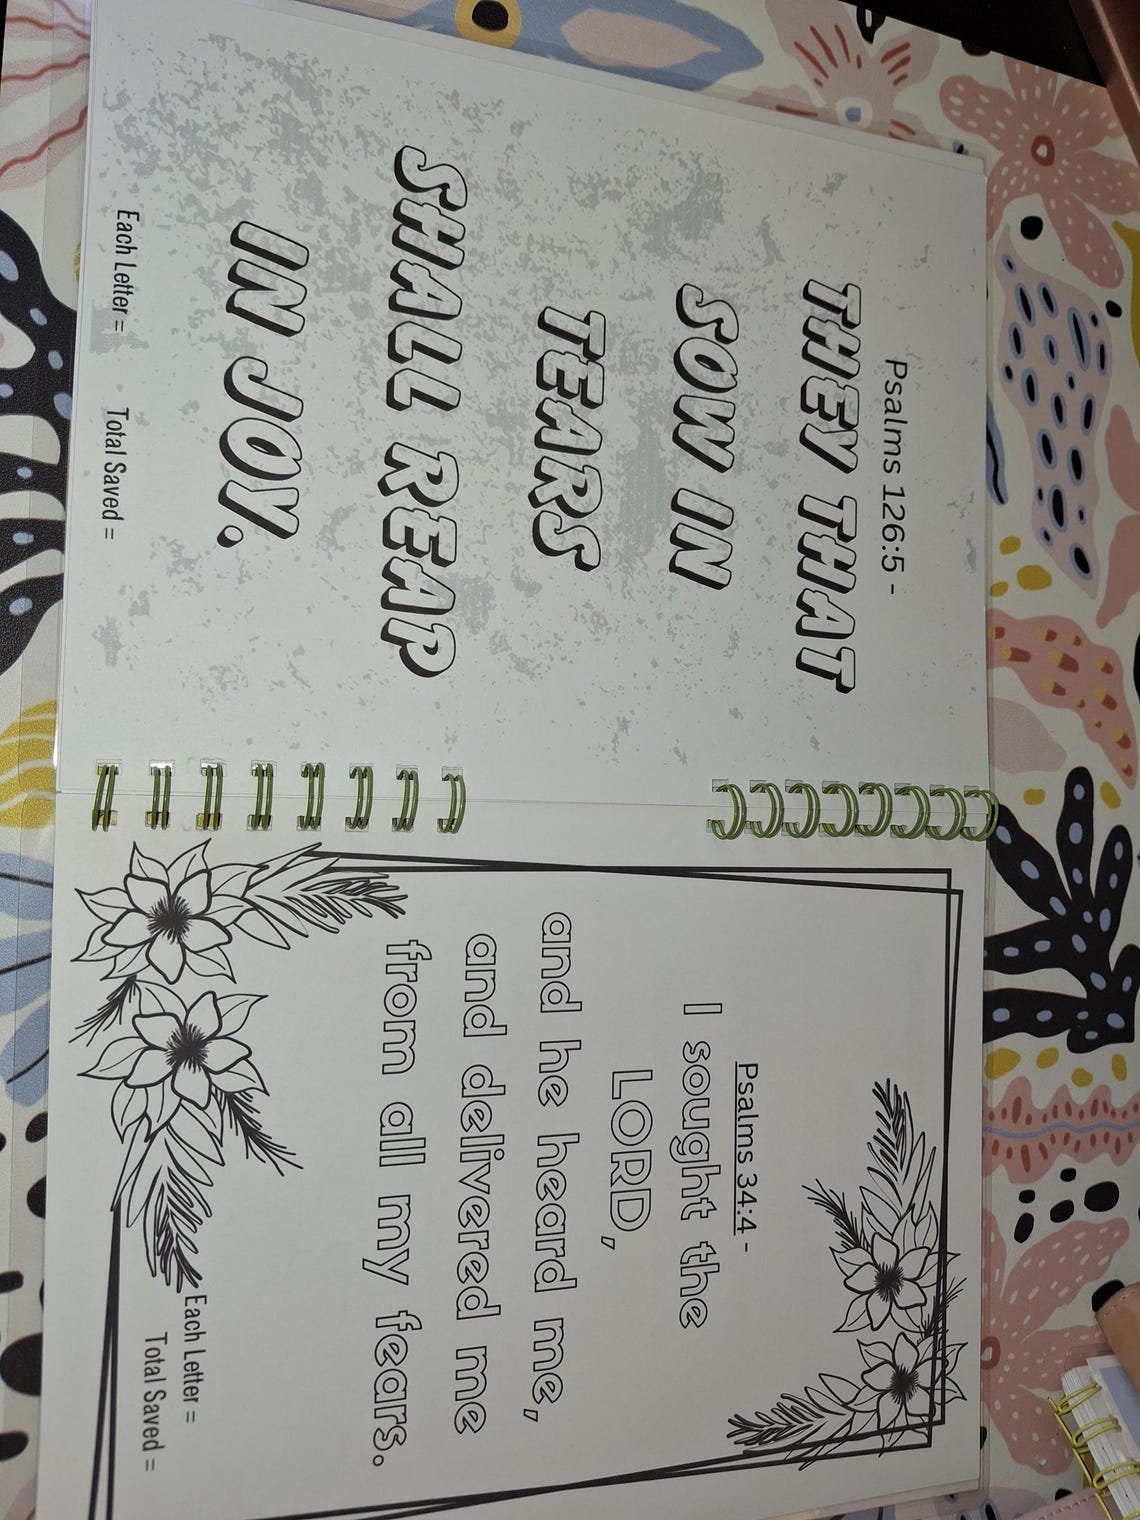 Psalms 126:5 -
THEY THAT
SOW IN
TEARS
SHALL REAP
IN JOY.
Each Letter = Total Saved =
Psalms 34:4 -
I sought the
LORD,
and he heard me,
and delivered me
from all my fears.
Each Letter =
Total Saved =